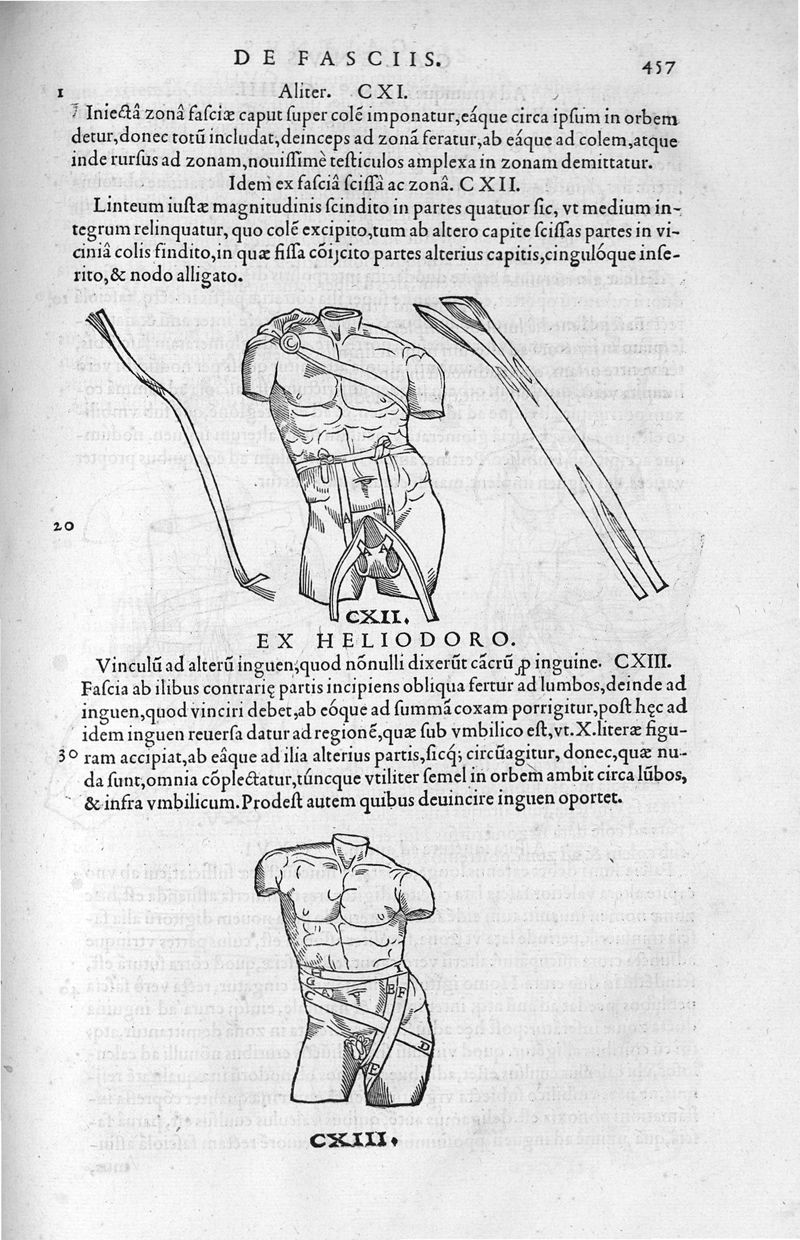 DE FASCIIS.
457
1
Aliter. CXI.
Iniectâ zonâ fasciæ caput super colẽ imponatur, eáque circa ipsum in orbem
detur, donec totũ includat, deinceps ad zonã feratur, ab eáque ad colem, atque
inde rursus ad zonam, nouissimè testiculos amplexa in zonam demittatur.
Idem ex fasciâ scissâ ac zonâ. CXII.
Linteum iustæ magnitudinis scindito in partes quatuor sic, vt medium in-
tegrum relinquatur, quo colẽ excipito, tum ab altero capite scissas partes in vi-
ciniâ colis findito, in quæ fissa cõijcito partes alterius capitis, cingulóque inse-
rito, & nodo alligato.
A
A
A
A
20
CXII.
EX HELIODORO.
Vinculũ ad alterũ inguen, quod nõnulli dixerũt cãcrũ ꝓ inguine. CXIII.
Fascia ab ilibus contrarię partis incipiens obliqua fertur ad lumbos, deinde ad
inguen, quod vinciri debet, ab eóque ad summã coxam porrigitur, post hęc ad
idem inguen reuersa datur ad regionẽ, quæ sub vmbilico est, vt. X. literæ figu-
30
ram accipiat, ab eâque ad ilia alterius partis, sicq́; circũagitur, donec, quæ nu-
da sunt, omnia cõplectatur, túncque vtiliter semel in orbem ambit circa lũbos,
& infra vmbilicum. Prodest autem quibus deuincire inguen oportet.
H
I
G
A
B
F
C
D
E
CXIII.